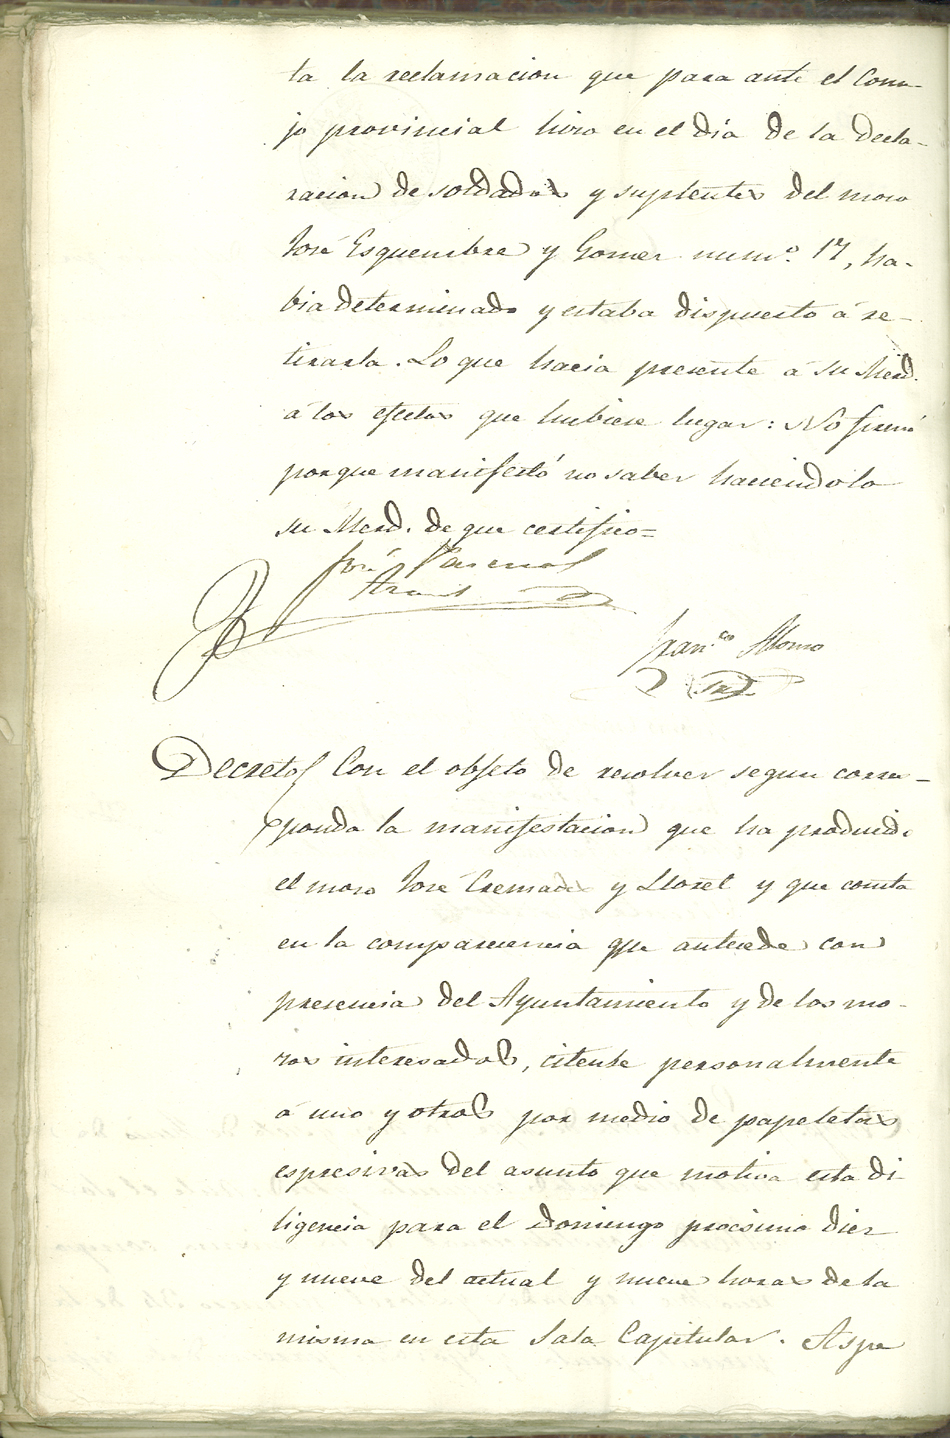 ta la reclamacion que para ante el Conse-
jo provincial hizo en el dia de la decla-
racion de soldados y suplentes del mozo
José Esquembre y Gomez num.o 17, ha-
bia determinado y estaba dispuesto á re-
tirarla. Lo que hacia presente á su Merd.
á los efectos que hubiere lugar: No firmó
porque manifestó no saber haciendolo
su Merd. de que certifico=
José Pascual
Fran.co Alonso
Decreto Con el objeto de resolver segun corres-
ponda la manifestacion que ha producido
el mozo José Cremades y Lloret y que consta
en la comparecencia que antecede con
presencia del Ayuntamiento y de los mo-
zos interesados, citense personalmente
á uno y otros por medio de papeletas
espresivas del asunto que motiva esta di-
ligencia para el Domingo procsimo diez
y nueve del actual y nueve horas de la
misma en esta Sala Capitular. Aspe